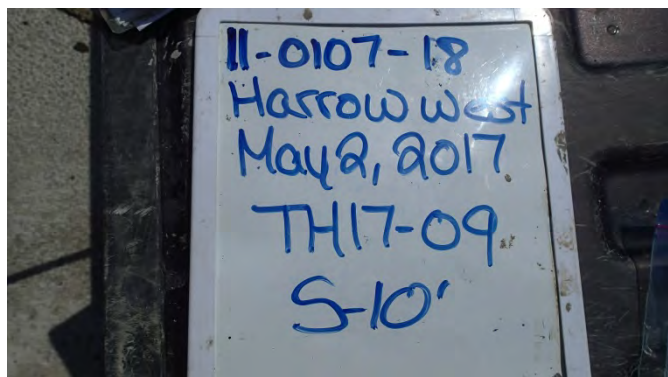 11-0107-18
Harrow west
May 2, 2017
TH17-09
5-10'